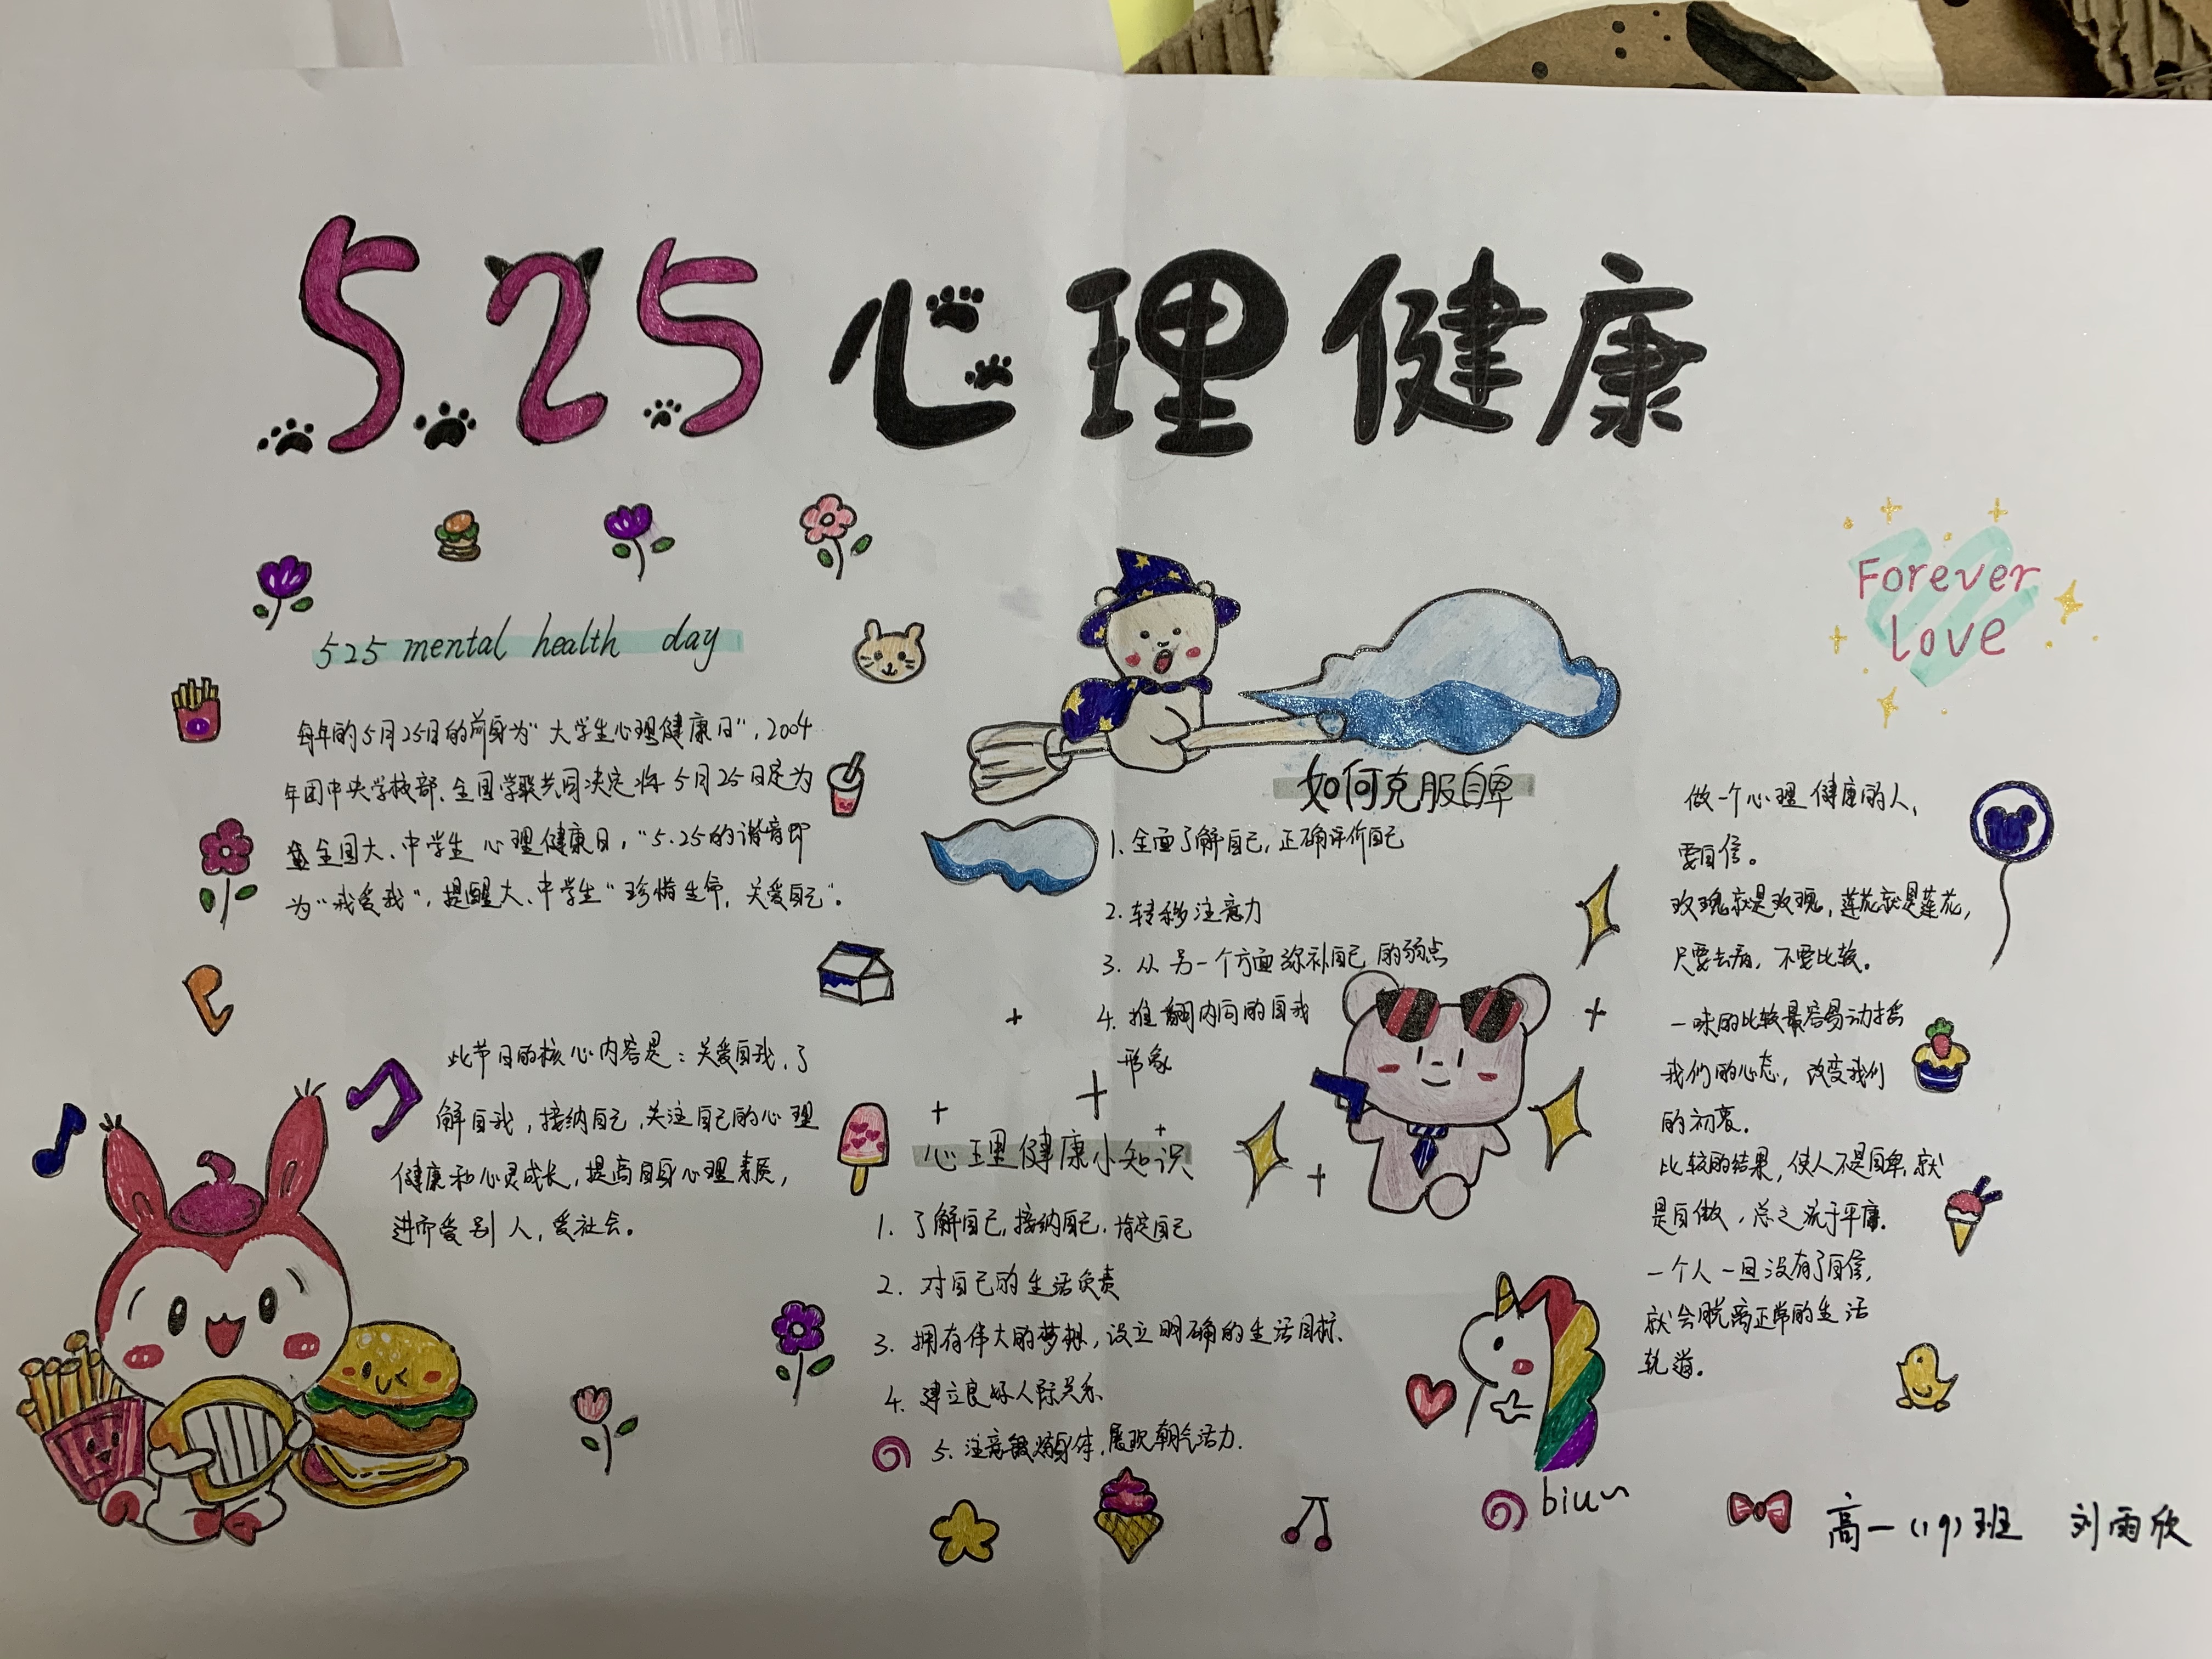 5.25心理健康
Forever
Love
525 mental health day
每年的5月25日的前身为“大学生心理健康日”，2004
年团中央学校部、全国学联共同决定将5月25日定为
全国大、中学生心理健康日，“5.25的谐音即
为“我爱我”，提醒大、中学生“珍惜生命，关爱自己”。
此节日的核心内容是：关爱自我，了
解自我，接纳自己，关注自己的心理
健康和心灵成长，提高自身心理素质，
进而爱别人，爱社会。
如何克服自卑
1. 全面了解自己，正确评价自己
2. 转移注意力
3. 从另一个方面弥补自己的弱点
4. 推翻内向的自我
形象
心理健康小知识
1. 了解自己，接纳自己，肯定自己
2. 对自己的生活负责
3. 拥有伟大的梦想，设立明确的生活目标、
4. 建立良好人际关系
5. 注意锻炼身体，展现朝气活力.
做一个心理健康的人，
要自信。
玫瑰就是玫瑰，莲花就是莲花，
只要去看，不要比较。
一味的比较最容易动摇
我们的心态，改变我们
的初衷.
比较的结果，使人不是自卑，就
是自傲，总之流于平庸.
一个人一旦没有了自信，
就会脱离正常的生活
轨道。
biu~
高一(19)班 刘雨欣